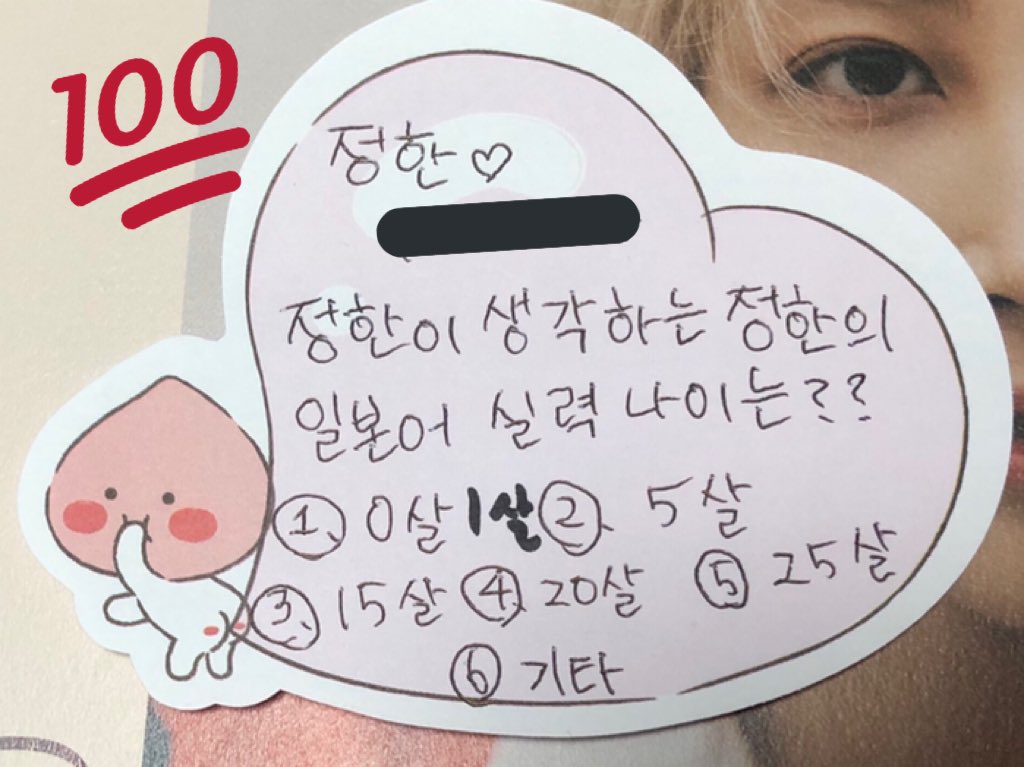 100
정한♡
정한이 생각하는 정한의
일본어 실력 나이는??
①. 0살 1살 ②. 5살
③. 15살 ④. 20살 ⑤ 25살
⑥ 기타